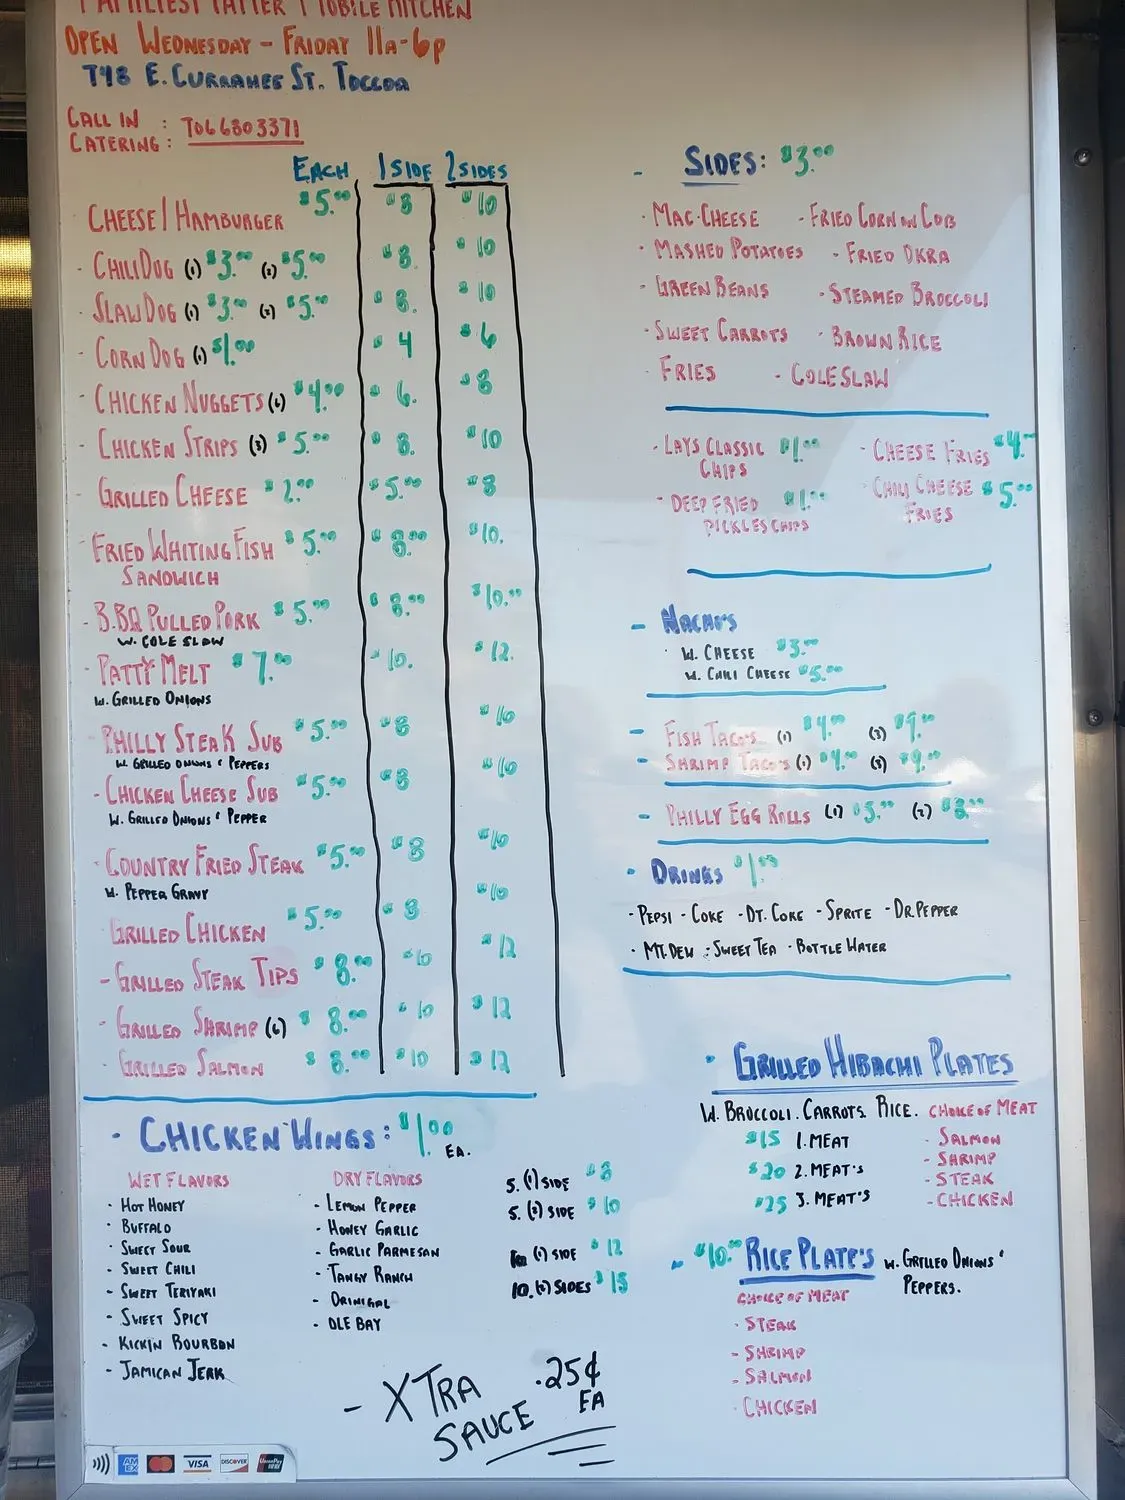 FAMILIEST PATTER MOBILE KITCHEN
OPEN WEDNESDAY - FRIDAY 11A-6P
748 E. CURRAHEE ST. TOCCOA
CALL IN :
CATERING : 706 680 3371
EACH 1 SIDE 2 SIDES
CHEESE / HAMBURGER $5.00 $8 $10
- CHILI DOG (1) $3.00 (2) $5.00 $8. $10
- SLAW DOG (1) $3.00 (2) $5.00 $8. $10
- CORN DOG (1) $1.00 $4 $6
- CHICKEN NUGGETS (6) $4.00 $6. $8
- CHICKEN STRIPS (3) $5.00 $8. $10
- GRILLED CHEESE $2.00 $5.00 $8
- FRIED WHITING FISH $5.00 $8.00 $10.
SANDWICH
- B.BQ PULLED PORK $5.00 $8.00 $10.00
W. COLE SLAW
- PATTY MELT $7.00 $10. $12.
W. GRILLED ONIONS
PHILLY STEAK SUB $5.00 $8 $10
W. GRILLED ONIONS & PEPPERS
- CHICKEN CHEESE SUB $5.00 $8 $10
W. GRILLED ONIONS & PEPPER
- COUNTRY FRIED STEAK $5.00 $8 $10
W. PEPPER GRAVY
- GRILLED CHICKEN $5.00 $8 $10
- GRILLED STEAK TIPS $8.00 $10 $12
- GRILLED SHRIMP (6) $8.00 $10 $12
- GRILLED SALMON $8.00 $10 $12
- CHICKEN WINGS: $1.00 EA.
WET FLAVORS
- HOT HONEY
- BUFFALO
- SWEET SOUR
- SWEET CHILI
- SWEET TERIYAKI
- SWEET SPICY
- KICKIN BOURBON
- JAMICAN JERK
DRY FLAVORS
- LEMON PEPPER
- HONEY GARLIC
- GARLIC PARMESAN
- TANGY RANCH
- ORINIGAL
- OLE BAY
5. (1) SIDE $8
5. (2) SIDE $10
10 (1) SIDE $12
10. (2) SIDES $15
- XTRA SAUCE .25¢ EA
- SIDES: $3.00
- MAC-CHEESE - FRIED CORN ON COB
- MASHED POTATOES - FRIED OKRA
- GREEN BEANS - STEAMED BROCCOLI
- SWEET CARROTS - BROWN RICE
- FRIES - COLESLAW
- LAYS CLASSIC CHIPS $1.00
- CHEESE FRIES $4.00
- DEEP FRIED PICKLES CHIPS $1.00
- CHILI CHEESE FRIES $5.00
- NACHO'S
- W. CHEESE $3.00
W. CHILI CHEESE $5.00
- FISH TACO'S (1) $4.00 (3) $9.00
- SHRIMP TACO'S (1) $4.00 (3) $9.00
- PHILLY EGG ROLLS (1) $5.00 (2) $8.00
- DRINKS $1.00
- PEPSI - COKE - DT. COKE - SPRITE - DR. PEPPER
- MT. DEW - SWEET TEA - BOTTLE WATER
- GRILLED HIBACHI PLATES
W. BROCCOLI. CARROTS. RICE. CHOICE OF MEAT
$15 1. MEAT
$20 2. MEAT'S
$25 3. MEAT'S
- SALMON
- SHRIMP
- STEAK
- CHICKEN
- $10.00 RICE PLATE'S W. GRILLED ONIONS &
PEPPERS.
CHOICE OF MEAT
- STEAK
- SHRIMP
- SALMON
- CHICKEN
AM EX
VISA
DISCOVER
UnionPay